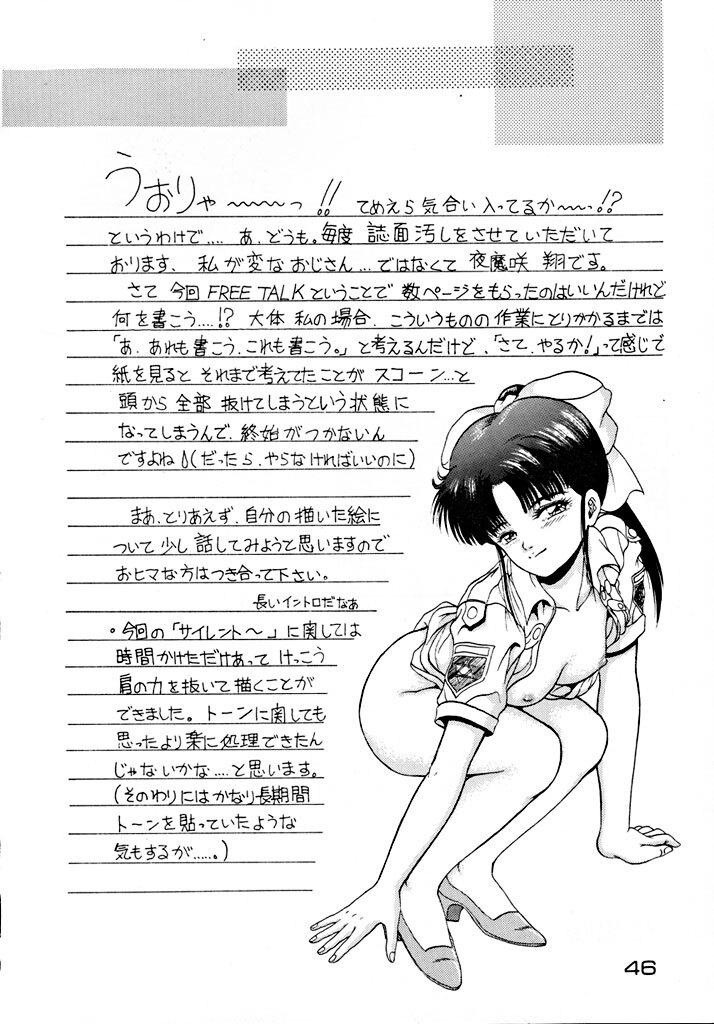 うおりゃ〜〜〜〜っ!! てめえら気合い入ってるか〜〜っ!?
というわけで‥‥ あ、どうも。毎度 誌面汚しをさせていただいて
おります、私が変なおじさん…ではなくて夜魔咲 翔です。
さて 今回 FREE TALKということで 数ページをもらったのはいいんだけれど
何を書こう‥‥!? 大体 私の場合、こういうものの作業にとりかかるまでは
「あ、あれも書こう、これも書こう。」と考えるんだけど、「さて、やるか!」って感じで
紙を見ると それまで考えてたことが スコーン…と
頭から 全部 抜けてしまうという状態に
なってしまうんで、終始がつかないん
ですよね(だったら、やらなければいいのに)
まあ、とりあえず、自分の描いた絵に
ついて 少し 話してみようと思いますので
おヒマな方はつき合って下さい。
長いイントロだなぁ
・今回の「サイレント〜」に関しては
時間かけただけあって けっこう
肩の力を抜いて描くことが
できました。トーンに関しても
思ったより楽に処理できたん
じゃないかな‥‥と思います。
(そのわりにはかなり長期間
トーンを貼っていたような
気もするが……。)
46